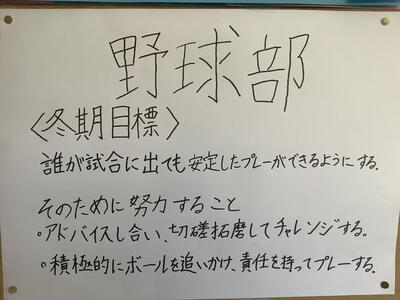 野球部
〈冬期目標〉
誰が試合に出ても安定したプレーができるようにする.
そのために努力すること
・アドバイスし合い、切磋拓磨してチャレンジする。
・積極的にボールを追いかけ、責任を持ってプレーする。